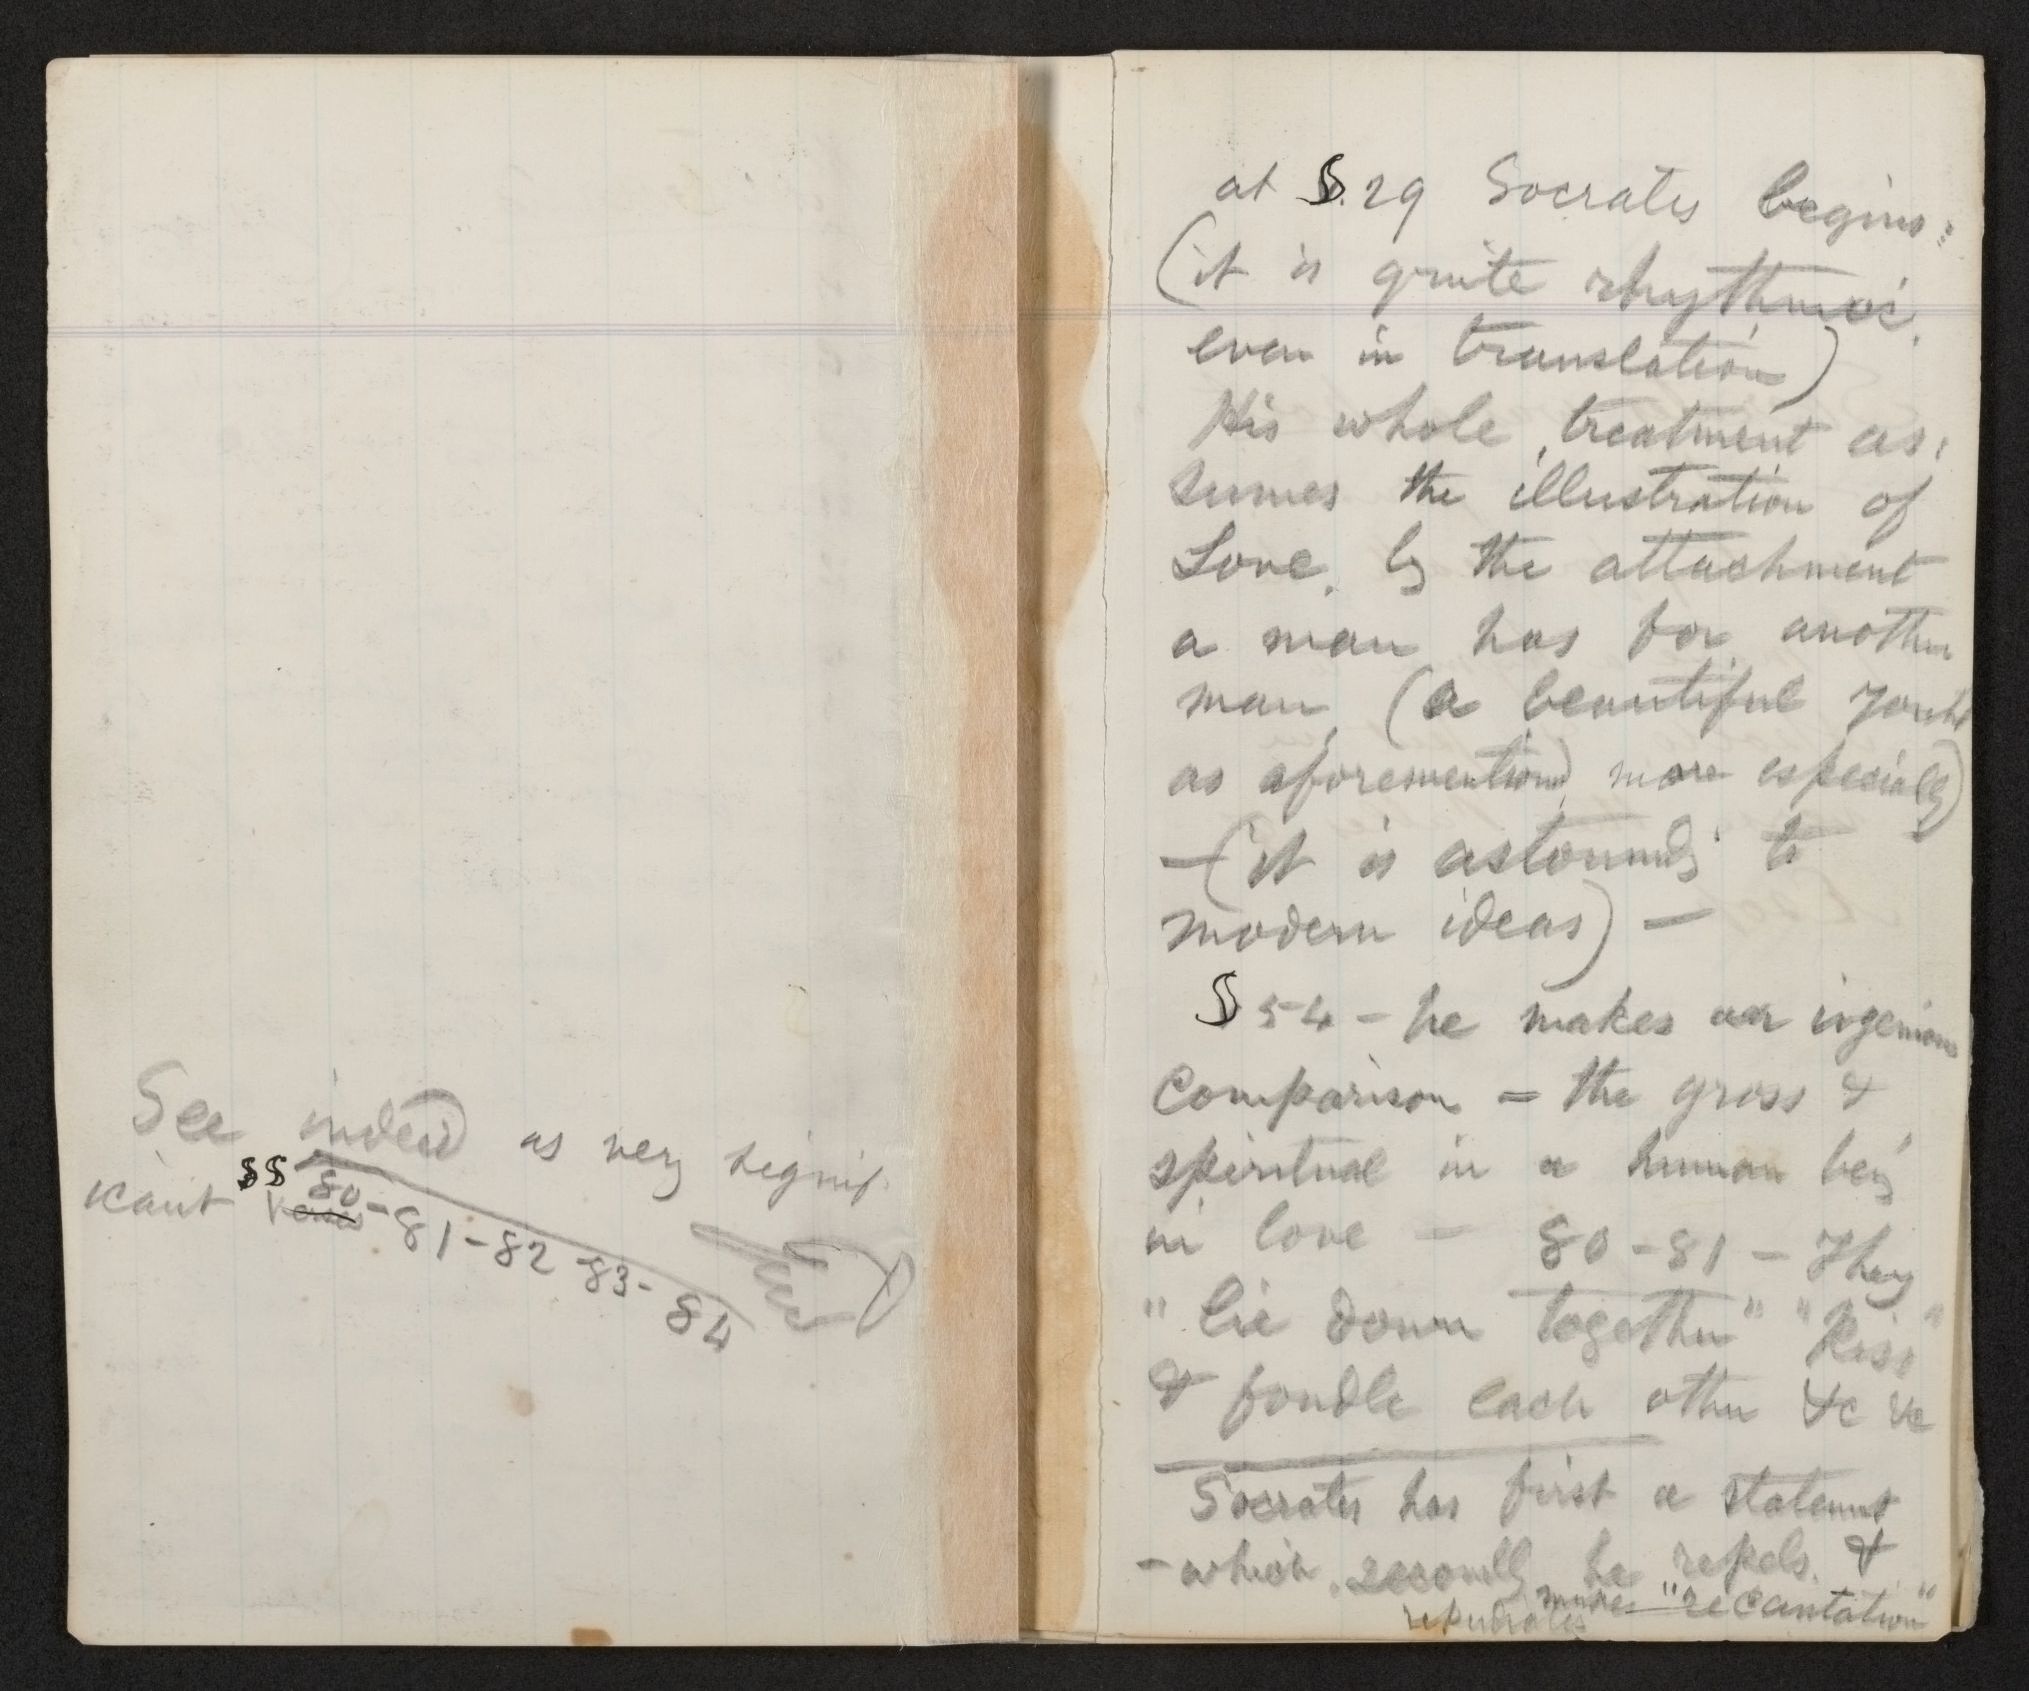 See indeed as very signif-
icant §§ Verses 80-81-82-83-84
at §.29 Socrates begins:
(it is quite rhythmic,
even in translation)
His whole treatment as-
sumes the illustration of
Love, by the attachment
a man has for another
man, (a beautiful youth
as aforementiond, more especially)
—(it is astoundg to
modern ideas) —
§ 54 - he makes an ingenious
comparison - the gross &
spiritual in a human beig
in love - 80-81 - They
"lie down together" "kiss"
& fondle each other &c &c
Socrates has first a statemnt
- which, secondly he repels, &
repudiates makes "recantation"